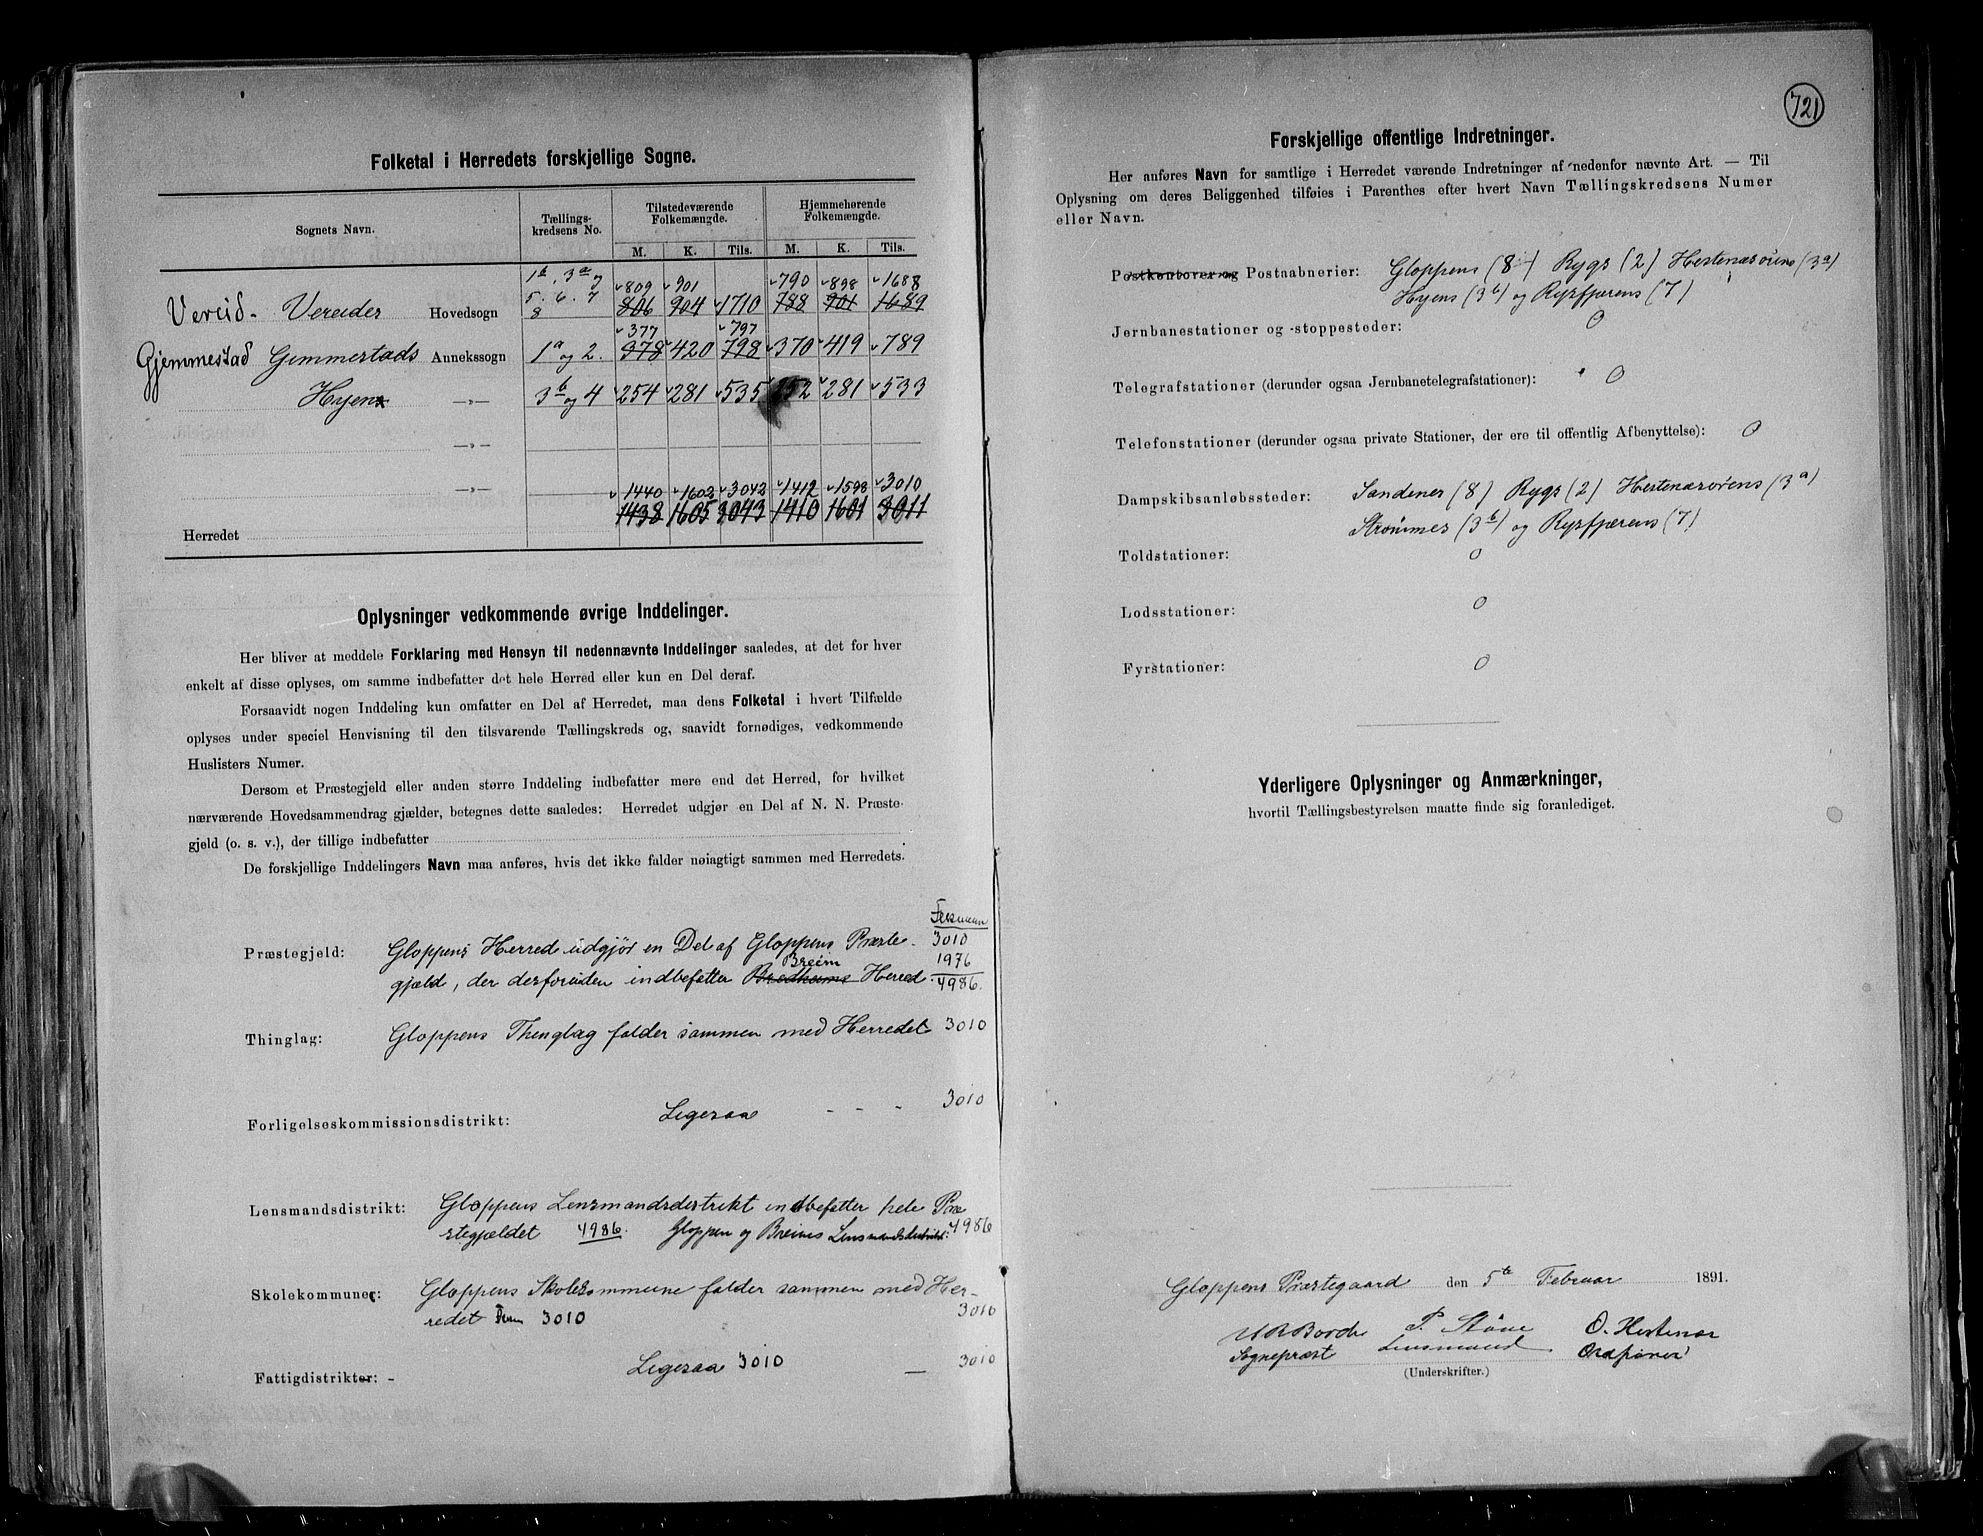 Folketal i Herredets forskjellige Sogne.
Sognets Navn. Tællings-kredsens No. Tilstedeværende Folkemængde. Hjemmehørende Folkemængde.
M. K. Tils. M. K. Tils.
1b. 3a og 809 901 790 898 1688
Vereid. Vereider Hovedsogn 5. 6. 7 8 806 904 1710 788 901 1689
377 797
Gjemmestad Gimmerstads Annekssogn 1a og 2. 378 420 798 370 419 789
Hyen —»— 3b og 4 254 281 535 252 281 533
—»—
—»— 1440 1602 3042 1412 1598 3010
1438 1605 3043 1410 1601 3011
Herredet
Oplysninger vedkommende øvrige Inddelinger.
Her bliver at meddele Forklaring med Hensyn til nedennævnte Inddelinger saaledes, at det for hver
enkelt af disse oplyses, om samme indbefatter det hele Herred eller kun en Del deraf.
Forsaavidt nogen Inddeling kun omfatter en Del af Herredet, maa dens Folketal i hvert Tilfælde
oplyses under speciel Henvisning til den tilsvarende Tællingskreds og, saavidt fornødiges, vedkommende
Huslisters Numer.
Dersom et Præstegjeld eller anden større Inddeling indbefatter mere end det Herred, for hvilket
nærværende Hovedsammendrag gjælder, betegnes dette saaledes: Herredet udgjør en Del af N. N. Præste-
gjeld (o. s. v.), der tillige indbefatter
De forskjellige Inddelingers Navn maa anføres, hvis det ikke falder nøiagtigt sammen med Herredets.
Præstegjeld: Gloppens Herred udgjør en Del af Gloppens Præste- 3010
Breim 1976
gjæld, der desforuden indbefatter Herred. 4986.
Thinglag: Gloppens Thinglag falder sammen med Herredet 3010
Forligelseskommissionsdistrikt: Ligesaa - - - 3010
Lensmandsdistrikt: Gloppens Lensmandsdistrikt indbefatter hele Præ
stegjældet 4986. Gloppen og Breims Lensmandsdistrikt: 4986
Skolekommuner: Gloppens Skolekommune falder sammen med Her-
redet 3010 3010
Fattigdistrikter: - Ligesaa 3010 — 3010
721
Forskjellige offentlige Indretninger.
Her anføres Navn for samtlige i Herredet værende Indretninger af nedenfor nævnte Art. — Til
Oplysning om deres Beliggenhed tilføies i Parenthes efter hvert Navn Tællingskredsens Numer
eller Navn.
Postkontorer og Postaabnerier: Gloppens (8) Rygs (2) Hestenæsørens (3a)
Hyens (3b) og Rysfjærens (7)
Jernbanestationer og -stoppesteder: 0
Telegrafstationer (derunder ogsaa Jernbanetelegrafstationer): 0
Telefonstationer (derunder ogsaa private Stationer, der ere til offentlig Afbenyttelse): 0
Dampskibsanløbssteder: Sandenes (8) Rygs (2) Hestenæsørens (3a)
Strømmes (3b) og Rysfjærens (7)
Toldstationer: 0
Lodsstationer: 0
Fyrstationer: 0
Yderligere Oplysninger og Anmærkninger,
hvortil Tællingsbestyrelsen maatte finde sig foranlediget.
Gloppens Præstegaard den 5te Februar 1891.
P. O. Hestenæs
Sognepræst Lensmand Ordfører
(Underskrifter.)